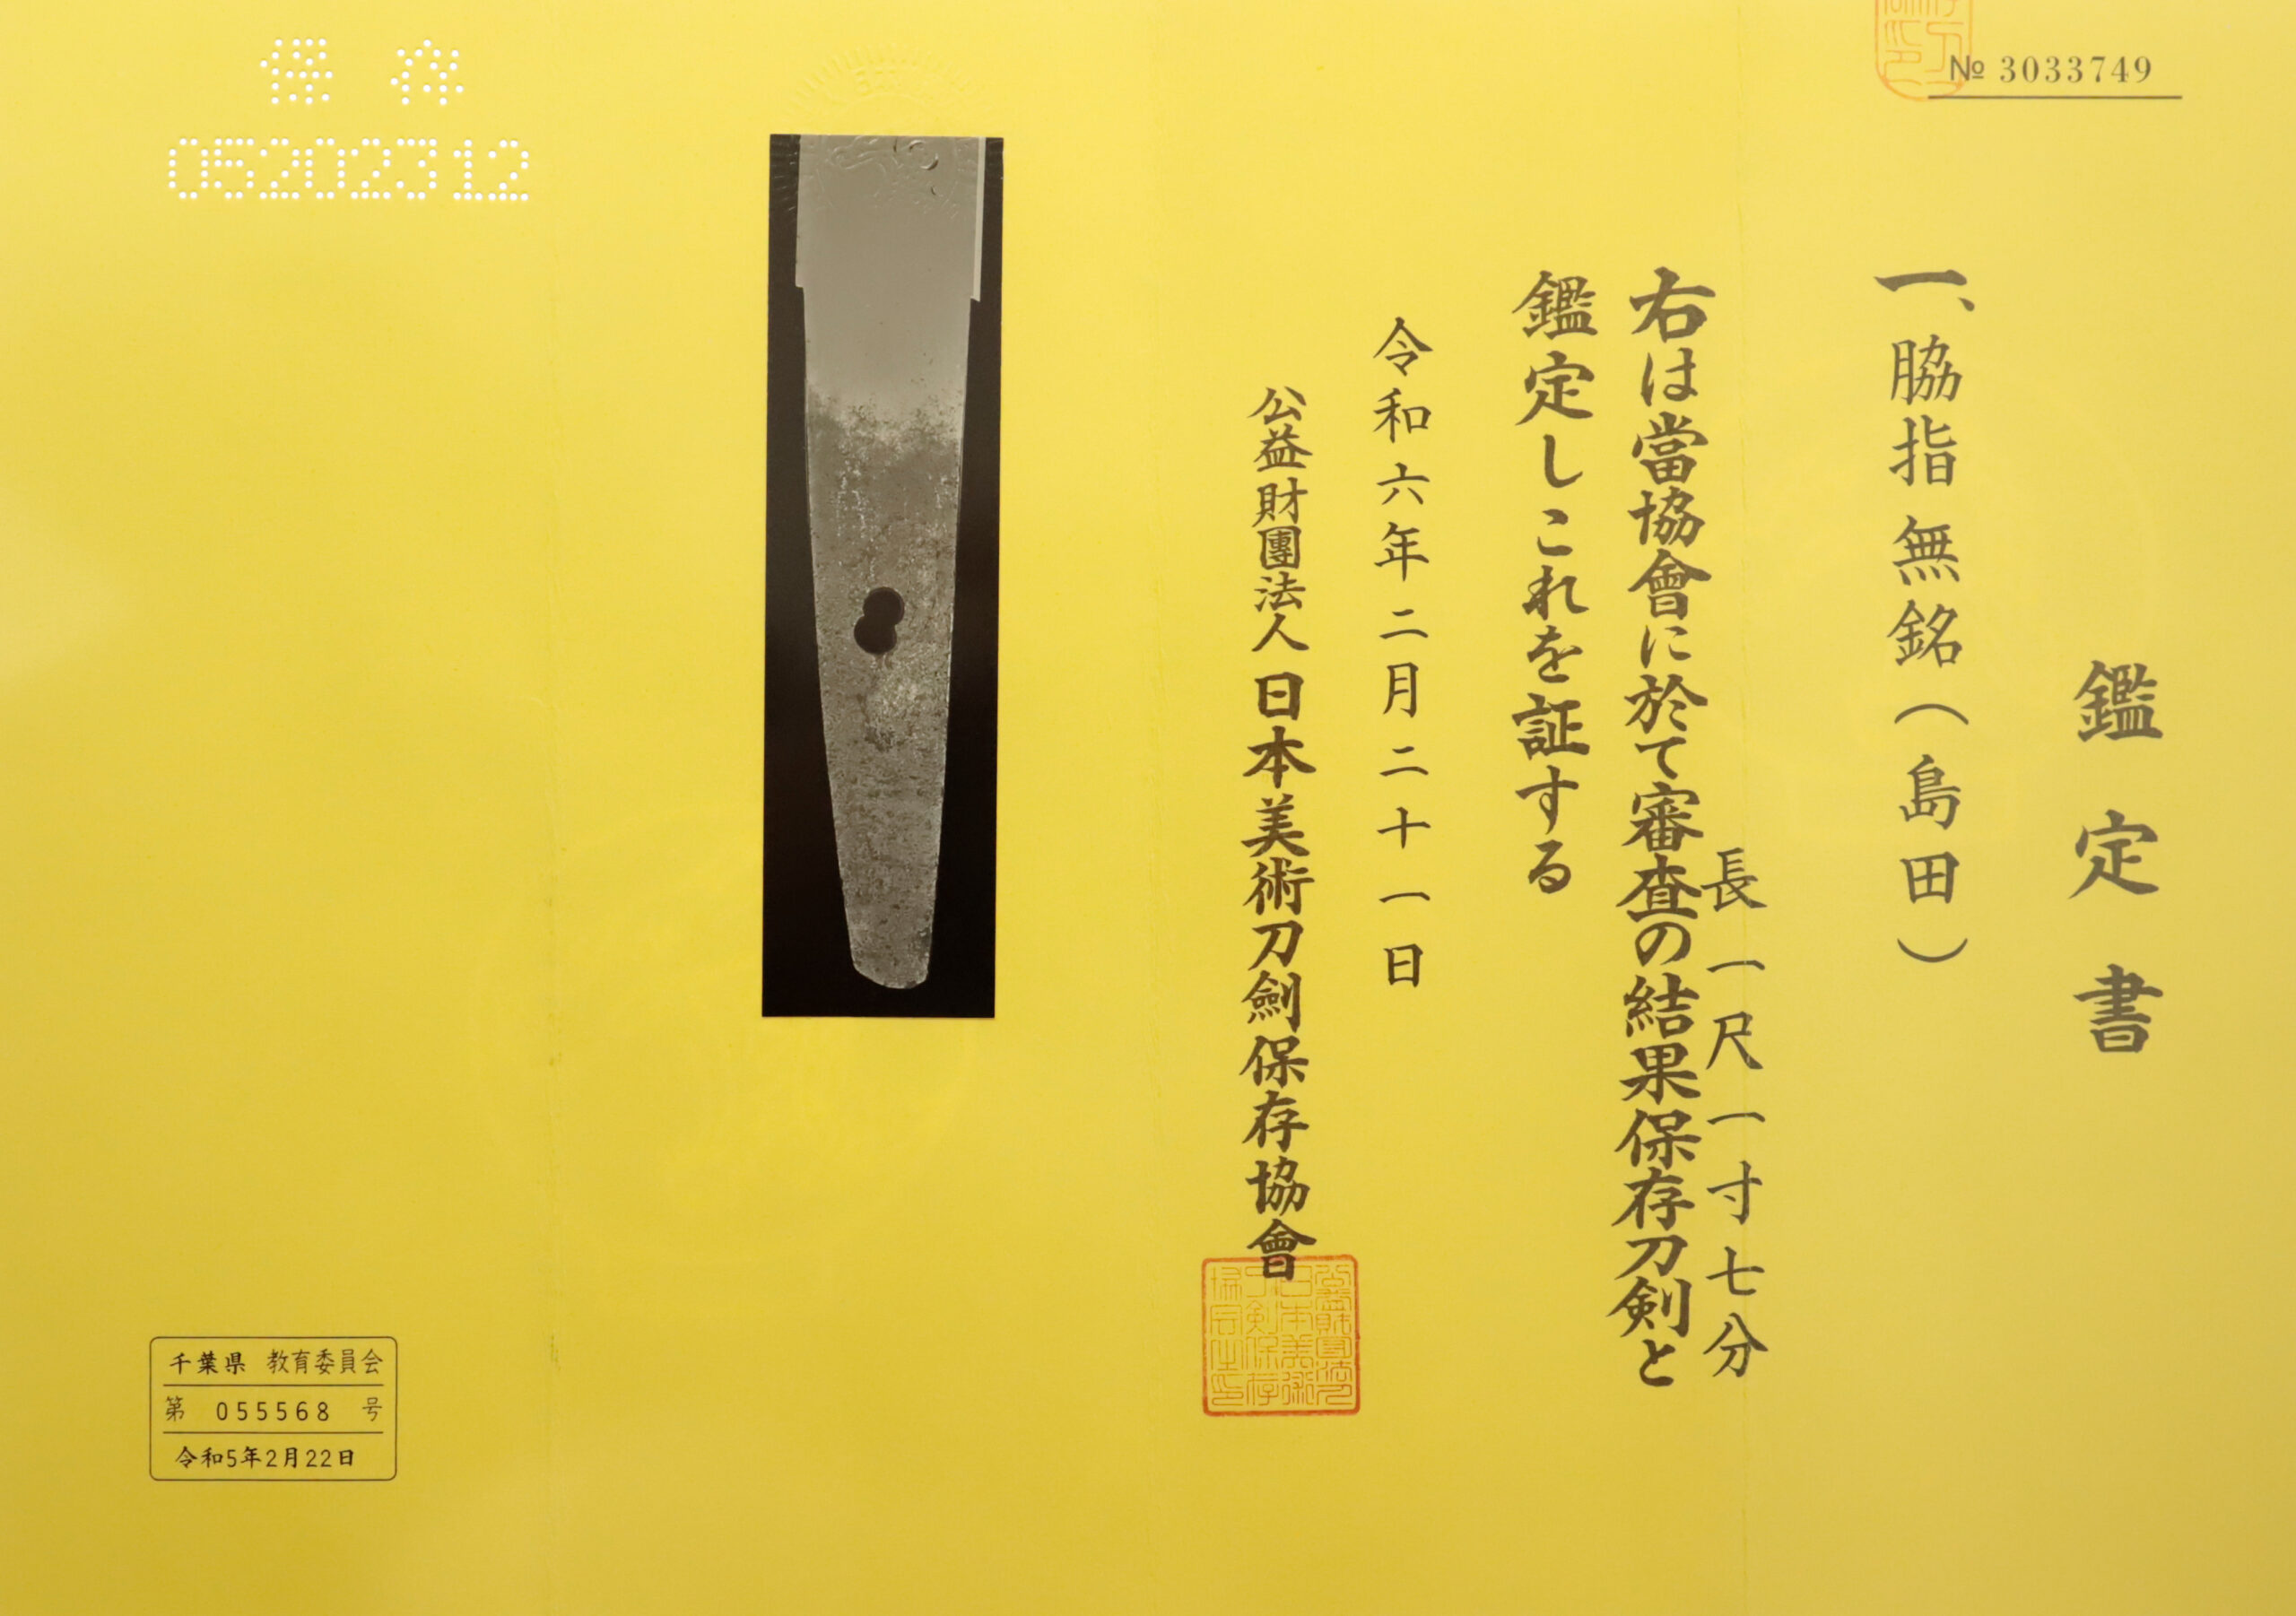 № 3033749
鑑定書
一、脇指 無銘（島田）
長一尺一寸七分
右は當協會に於て審査の結果保存刀剣と
鑑定しこれを証する
令和六年二月二十一日
公益財團法人 日本美術刀劍保存協會
保存
05202312
千葉県 教育委員会
第 055568 号
令和5年2月22日